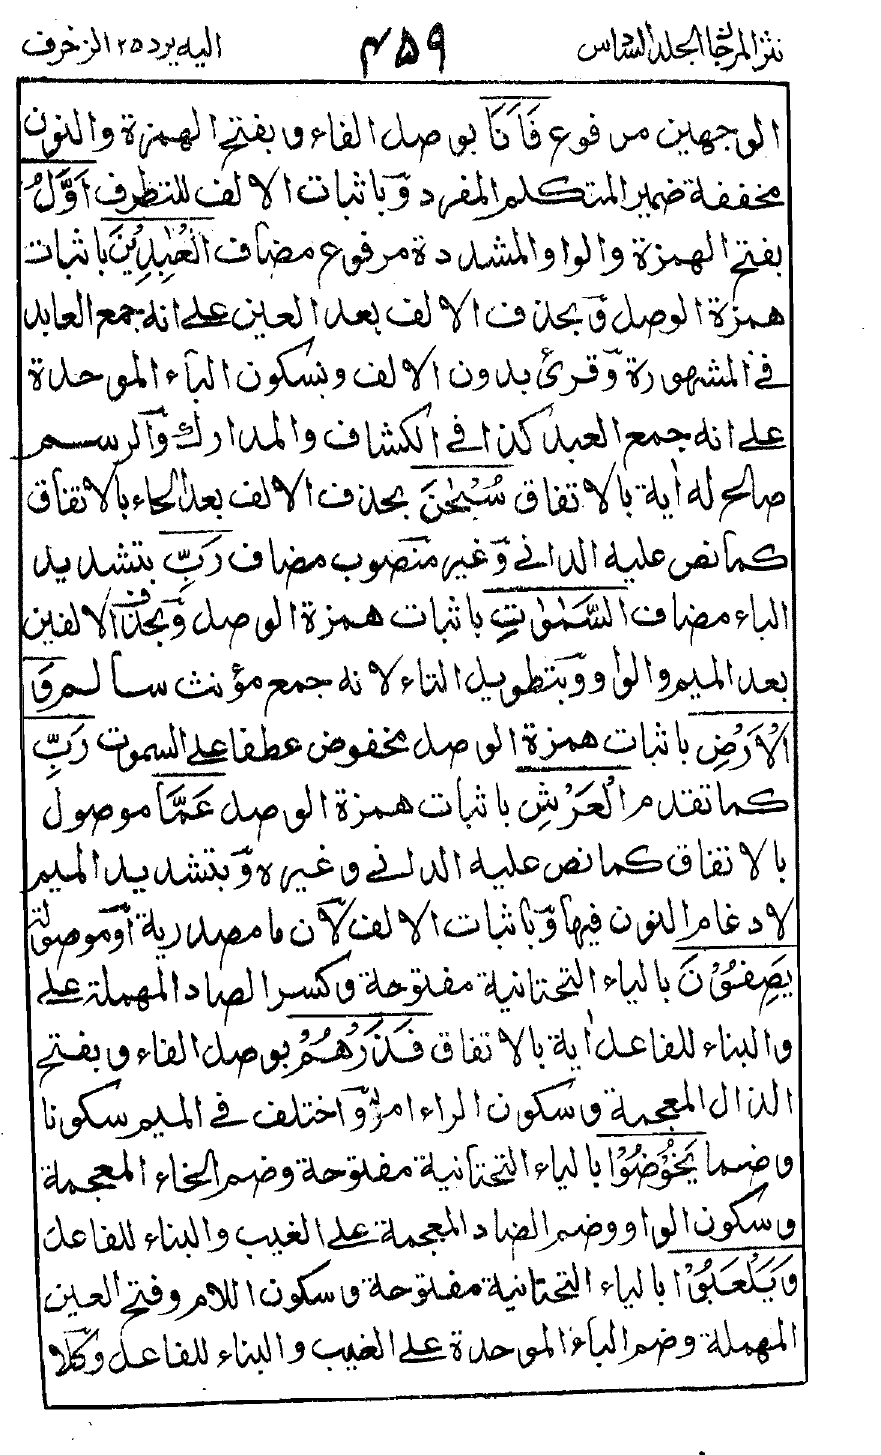 نثر المرجان المجلد السادس ٤٥٩ اليه يرد ٢٥ الزخرف
الوجهين مرفوع فَاَنَا بوصل الفاء وبفتح الهمزة والنون
مخففة ضمير المتكلم المفرد وَباثبات الالف للتطرف اَوَّلُ
بفتح الهمزة والواو المشددة مرفوع مضاف الْعٰبِدِيْنَ باثبات
همزة الوصل وَبحذف الالف بعد العين على انه جمع العابد
فى المشهورة وَقرئ بدون الالف وبسكون الباء الموحدة
على انه جمع العبد كذا فى الكشاف والمدارك وَالرسم
صالح له اٰية بالاتفاق سُبْحٰنَ بحذف الالف بعد الحاء بالاتفاق
كما نص عليه الدانى وَغيره منصوب مضاف رَبِّ بتشديد
الباء مضاف السَّمٰوٰتِ باثبات همزة الوصل وَبحذف الالفين
بعد الميم والواو وبتطويل التاء لانه جمع مؤنث سالم وَ
الْاَرْضِ باثبات همزة الوصل مخفوض عطفا على السموت رَبِّ
كما تقدم الْعَرْشِ باثبات همزة الوصل عَمَّا موصول
بالاتفاق كما نص عليه الدانى وغيره وَبتشديد الميم
لادغام النون فيها وَباثبات الالف لان ما مصدرية اَوموصولة
يَصِفُوْنَ بالياء التحتانية مفتوحة وكسر الصاد المهملة على
والبناء للفاعل اٰية بالاتفاق فَذَرْهُمْ بوصل الفاء وبفتح
الذال المعجمة وسكون الراء امر وَاختلف فى الميم سكونا
وضما يَخُوْضُوْا بالياء التحتانية مفتوحة وضم الخاء المعجمة
وسكون الواو وضم الضاد المعجمة على الغيب والبناء للفاعل
وَيَلْعَبُوْا بالياء التحتانية مفتوحة وسكون اللام وفتح العين
المهملة وضم الباء الموحدة على الغيب والبناء للفاعل وكلا